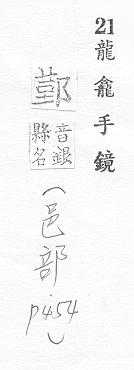 21龍龕手鏡
鄞
音銀
縣名
(邑部
p454)